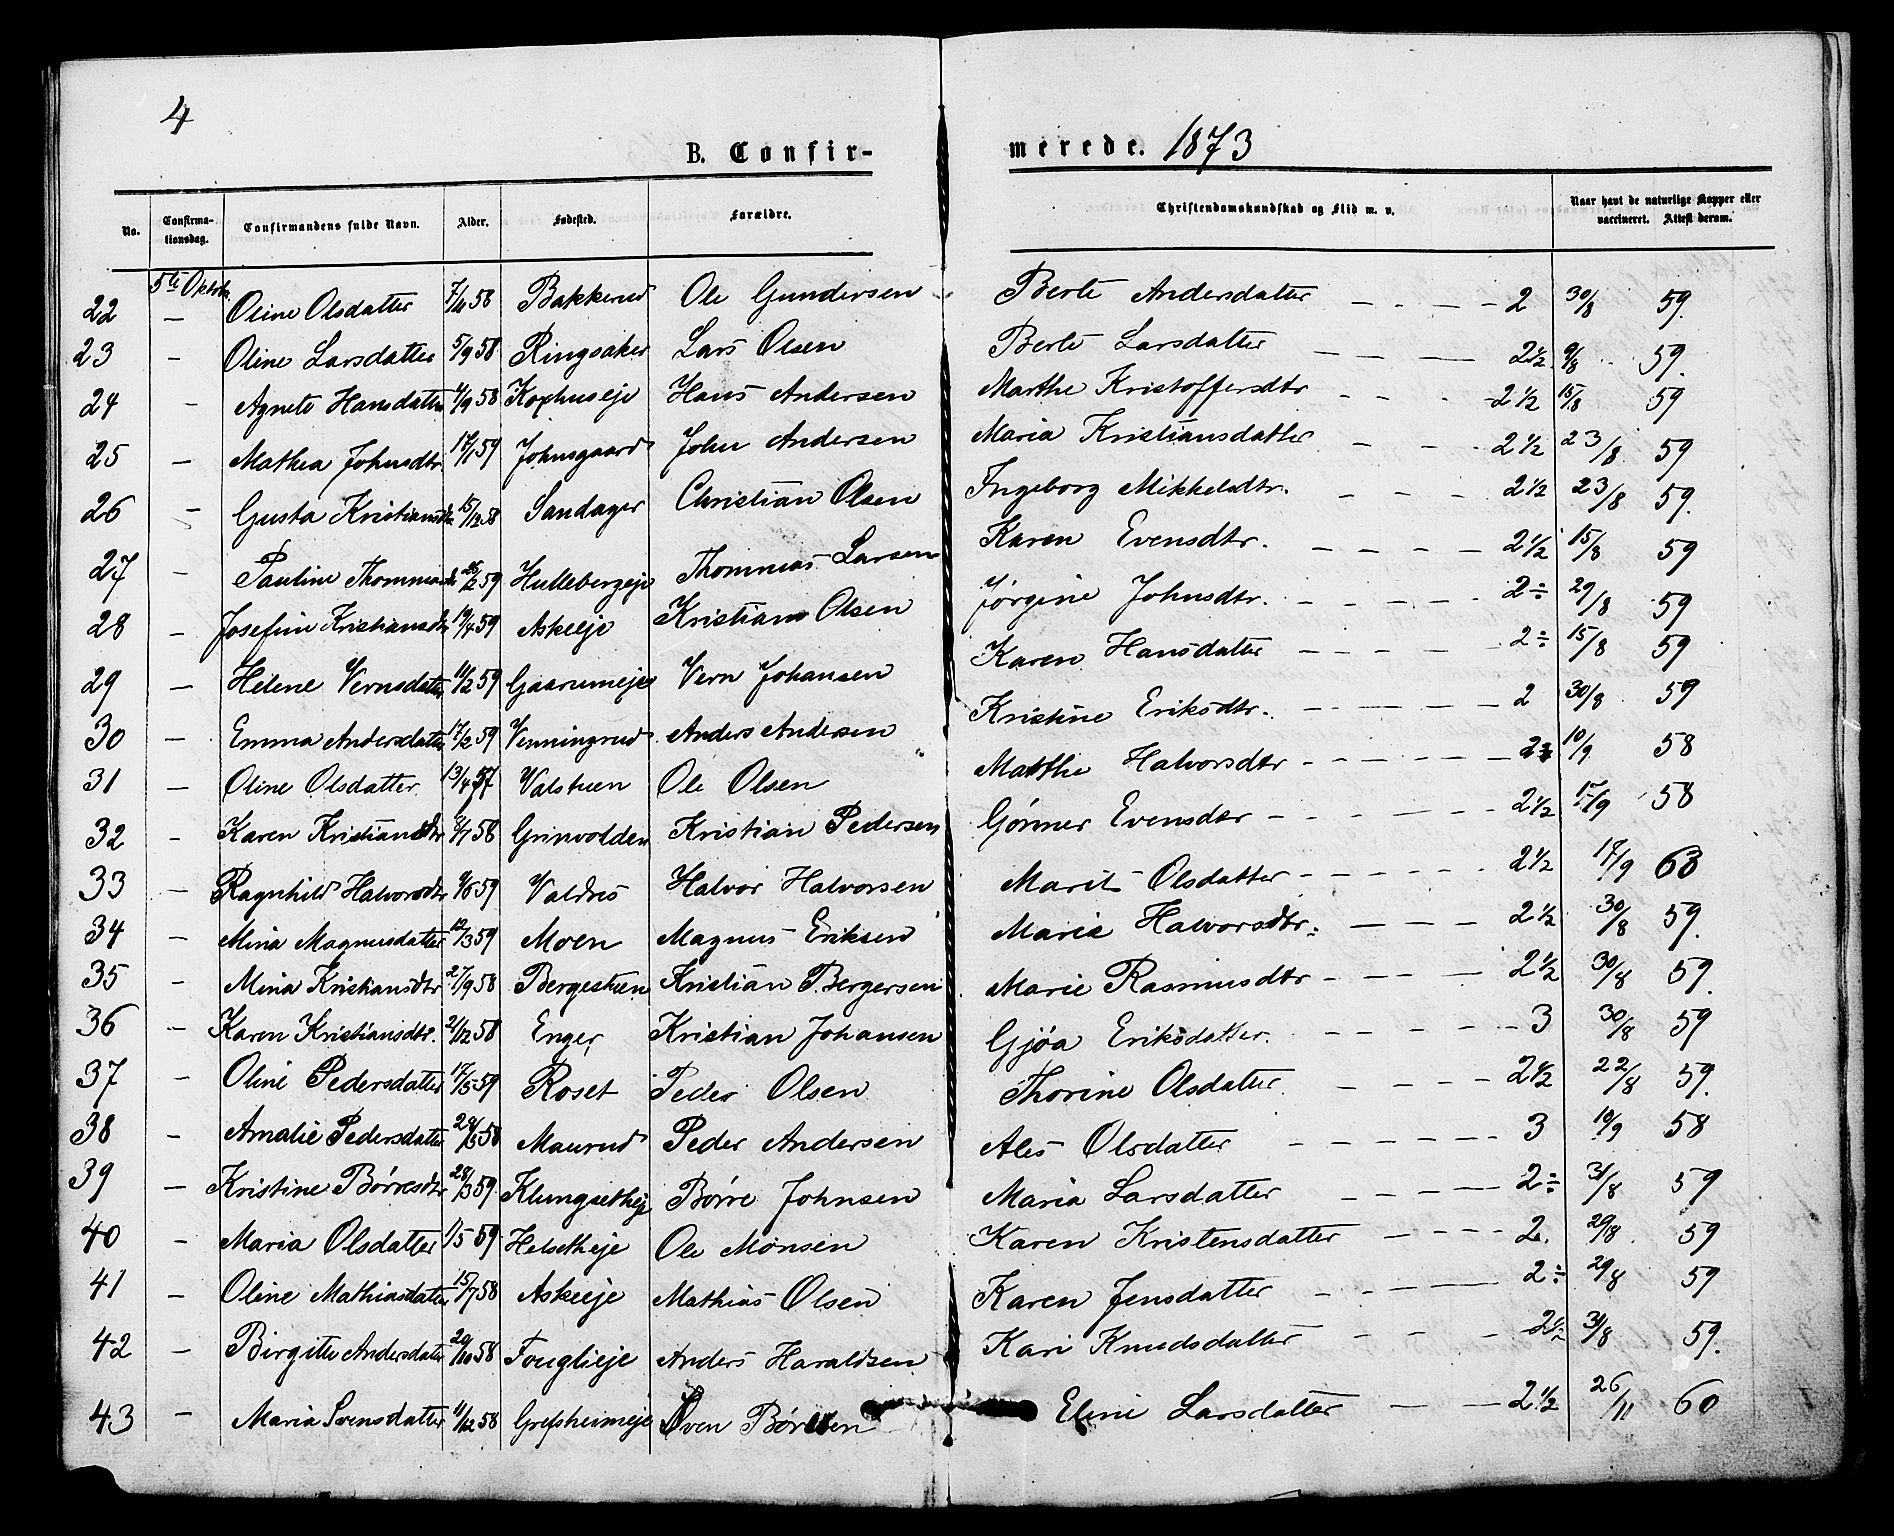 4
B. Confirmerede. 1873
No. Confirmationsdag. Confirmandens fulde Navn. Alder. Fødested. Forældre. Christendomskundskab og Flid m. v. Naar havt de naturlige Kopper eller vaccineret. Attest derom.
5te Oktobr
22 — Oline Olsdatter 58 Bakkerud Ole Gundersen Berte Andersdatter 2 30/8 59.
23 - Oline Larsdatter 5/9 58 Ringsaker Lars Olsen Berte Larsdatter 2 1/2 9/8 59.
24 - Agnete Hansdatter 4/9 58 Hans Andersen Marthe Kristoffersdtr 2 1/2 15/8 59
25 — Mathea Johnsdtr. 17/1 59 Johnsgaard John Andersen Maria Kristiansdatter 2 1/2 23/8 59
26 - Gusta Kristiansdtr 15/12 58 Sandager Christian Olsen Ingeborg Mikkelsdtr. 2 1/2 23/8 59.
27 - Pauline 26/2 59 Hullebergeje Thommas Larsen Karen Evensdtr. 2 1/2 15/8 59
28 - Josefine Kristiansdtr 19/4 59 Askeeje Kristian Olsen Jørgine Johnsdtr. 2÷ 29/8 59
29 — Helene Vernsdatter 11/2 59 Vern Johansen Karen Hansdatter 2÷ 15/8 59
30 — Emma Andersdatter 17/2 59 Venningrud Anders Andersen Kristine Eriksdtr. 2 30/8 59
31 — Oline Olsdatter 13/4 57 Valstuen Ole Olsen Marthe Halvorsdtr 10/9 58
32 — Karen Kristiansdtr 58 Grinvolden Kristian Pedersen Gønner Evensdtr 2 1/2 58
33 — Ragnhild Halvorsdtr 9/6 59 Valdres Halvor Halvorsen Marit Olsdatter 2 1/2 17/9 63
34 — Mina Magnusdatter 12/3 59 Moen Magnus Eriksen Marie Halvorsdtr. 2 1/2 30/8 59.
35 - Mina Kristiansdtr 27/9 58 Bergestuen Kristian P. Bergersen Marie Rasmusdtr 2 1/2 30/8 59.
36 — Karen Kristiansdtr. 21/12 58 Enger Kristian Johansen Gjøa Eriksdatter. 3 30/8 59
37 - Oline Pedersdatter 17/5 59 Roset Peder Olsen Thorine Olsdatter 2 1/2 22/8 59.
38 - Amalie Pedersdatter 58 Maurud Peder Andersen Ales Olsdatter 3 10/9 58
39 — Kristine Børresdtr 28/3 59. Klungsetheje Børre Johnsen Maria Larsdatter 2÷ 31/8 59
40 - Maria Olsdatter 1/5 59 Helsetheje Ole Monsen Karen Kristensdatter 2. 29/8 59
41 — Oline Mathiasdatter 15/7 58 Askeeje Mathias Olsen Karen Jensdatter 2÷ 29/8 59
42 - Birgitte Andersdatter 20/10 58 Fouglieje Anders Haraldsen Kari Knudsdatter 2 1/2 31/8 59.
43 - Maria Svensdatter 11/12 58 Grefsheimeje Sven Børresen Eline Larsdatter 2 1/2 26/11 60